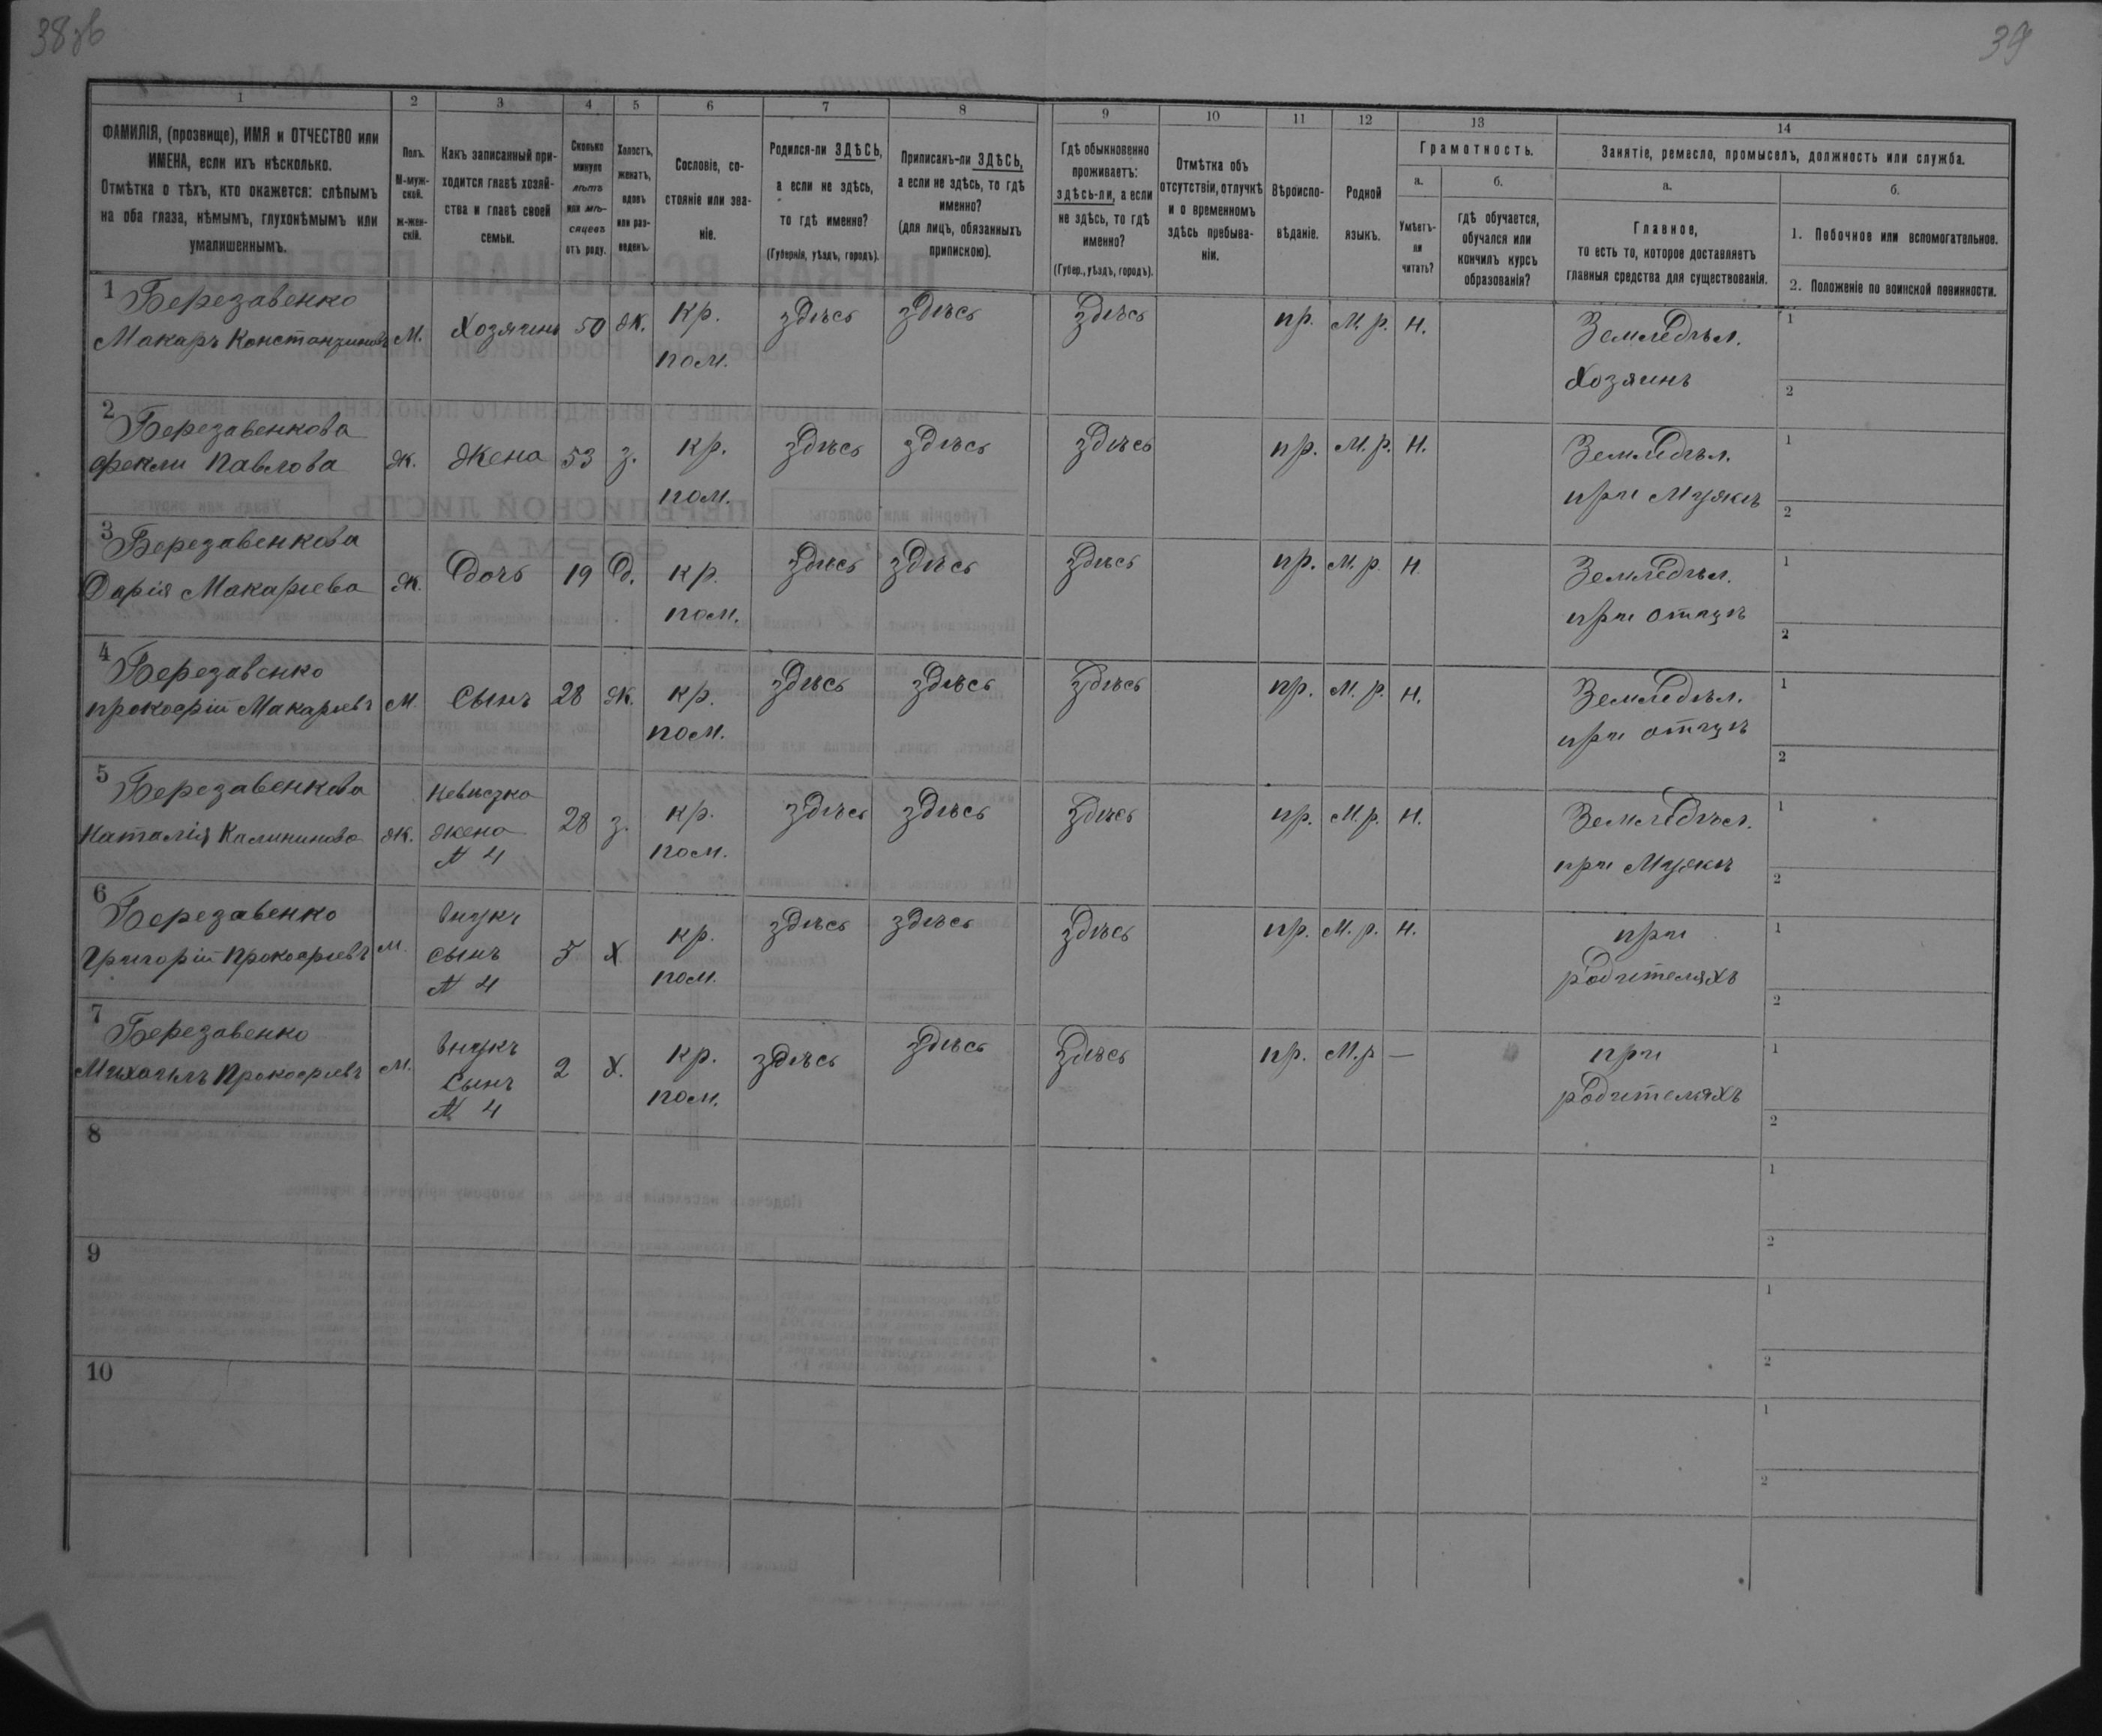 38 зв
39
1
2
3
4
5
6
7
8
9
10
11
12
13
14
ФАМИЛІЯ, (прозвище), ИМЯ и ОТЧЕСТВО или
ИМЕНА, если ихъ нѣсколько.
Отмѣтка о тѣхъ, кто окажется: слѣпымъ
на оба глаза, нѣмымъ, глухонѣмымъ или
умалишеннымъ.
Полъ.
М-муж-
ской.
ж-жен-
скій.
Какъ записанный при-
ходится главѣ хозяй-
ства и главѣ своей
семьи.
Сколько
минуло
лѣтъ
или мѣ-
сяцевъ
отъ роду.
Холостъ,
женатъ,
вдовъ
или раз-
веденъ.
Сословіе, со-
стояніе или зва-
ніе.
Родился-ли ЗДѢСЬ,
а если не здѣсь,
то гдѣ именно?
(Губернія, уѣздъ, городъ).
Приписанъ-ли ЗДѢСЬ,
а если не здѣсь, то гдѣ
именно?
(для лицъ, обязанныхъ
припискою).
Гдѣ обыкновенно
проживаетъ:
здѣсь-ли, а если
не здѣсь, то гдѣ
именно?
(Губер., уѣздъ, городъ).
Отмѣтка объ
отсутствіи, отлучкѣ
и о временномъ
здѣсь пребыва-
ніи.
Вѣроиспо-
вѣданіе.
Родной
языкъ.
Грамотность.
а.
б.
Умѣетъ-
ли
читать?
гдѣ обучается,
обучался или
кончилъ курсъ
образованія?
Занятіе, ремесло, промыселъ, должность или служба.
а.
б.
Главное,
то есть то, которое доставляетъ
главныя средства для существованія.
1. Побочное или вспомогательное.
2. Положеніе по воинской повинности.
1 Березавенко
Макаръ Константиновъ М. Хозяинъ 50 ж. кр. здѣсь здѣсь здѣсь пр. М. р. н. Земледѣл. 1
пом. Хозяинъ 2
2 Березавенкова
Фекли Павлова ж. жена 53 з. кр. здѣсь здѣсь здѣсь пр. М. р. н. Земледѣл. 1
пом. при Мужѣ 2
3 Березавенкова
Дарія Макарьева ж. дочь 19 д. кр. здѣсь здѣсь здѣсь пр. М. р. н. Земледѣл. 1
пом. при отцѣ 2
4 Березавенко
прокофій Макарьевъ М. сынъ 28 ж. кр. здѣсь здѣсь здѣсь пр. М. р. н. Земледѣл. 1
пом. при отцѣ 2
5 Березавенкова Невѣстка
Наталія Калининова ж. жена 28 з. кр. здѣсь здѣсь здѣсь пр. М. р. н. Земледѣл. 1
№ 4 пом. при Мужѣ 2
6 Березавенко внукъ
Григорій Прокофьевъ М. сынъ 5 х кр. здѣсь здѣсь здѣсь пр. М. р. н. при 1
№ 4 пом. родителяхъ 2
7 Березавенко внукъ
Михаилъ Прокофьевъ М. сынъ 2 х. кр. здѣсь здѣсь здѣсь пр. М. р — при 1
№ 4 пом. родителяхъ 2
8
1
2
9
1
2
10
1
2